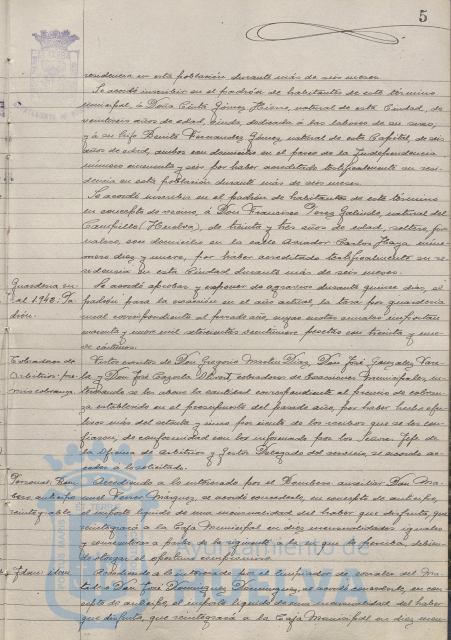 5
residencia en esta población durante más de seis meses.
Se acordó inscribir en el padrón de habitantes de este término
municipal, á Doña Cinta Gómez Hierro, natural de esta Ciudad, de
veintiseis años de edad, viuda, dedicada á las labores de su sexo,
y á su hijo Benito Fernandez Gómez natural de esta Capital, de seis
años de edad, ambos con domicilio en el paseo de la Independencia
número cincuenta y seis por haber acreditado testificalmente su resi-
dencia en esta población durante más de seis meses.
Se acordó inscribir en el padrón de habitantes de este término
en concepto de vecino, á Don Francisco Perez Galindo, natural del
Campillo (Huelva), de treinta y tres años de edad, soltero, jor-
nalero, con domicilio en la calle Aviador Carlos Haya núme-
ro diez y nueve, por haber acreditado testificalmente su re-
sidencia en esta Ciudad durante más de seis meses.
Guardería ru-
ral 1940. Pa-
drón.
Se acordó aprobar y exponer de agravios durante quince dias, el
padrón para la exacción en el año actual, la tasa por guardería
rural correspondiente al pasado año, cuyas cuotas anuales importan
cuarenta y nueve mil setecientas veintinueve pesetas con treinta y nue-
ve céntimos.
Cobradores de
Arbitrios: pre-
mio cobranza
Vistos escritos de Don Gregorio Martin Diaz, Don José Gonzalez Vare-
la y Don José Cazorla, cobradores de Exacciones Municipales, in-
teresando se les abone la cantidad correspondiente al premio de cobran-
za establecido en el presupuesto del pasado año, por haber hecho efec-
tivos más del ochenta y cinco por ciento de los recursos que se les con-
fiaron, de conformidad con los informado por los Señores Jefe de
la Oficina de Arbitrios y Gestor Delegado del servicio, se acordó ac-
ceder á lo solicitado.
Personal. Bom-
bero anticipo
reintegrable
Accediendo á lo interesado por el Bombero auxiliar Don Ma-
nuel Ponce Márquez, se acordó concederle, en concepto de anticipo,
el importe líquido de una mensualidad del haber que disfruta, que
reintegrará á la Caja Municipal en diez mensualidades iguales
y consecutivas á partir de la siguiente á la en que la perciba, debien-
do otorgar el oportuno compromiso.
Idem: idem
Accediendo á lo interesado por el limpiador de corrales del Ma-
tadero Don José Dominguez Dominguez, se acordó concederle, en con-
cepto de anticipo, el importe líquido de una mensualidad del haber
que disfruta, que reintegrará á la Caja Municipal en diez men-
Ayuntamiento de
HUELVA